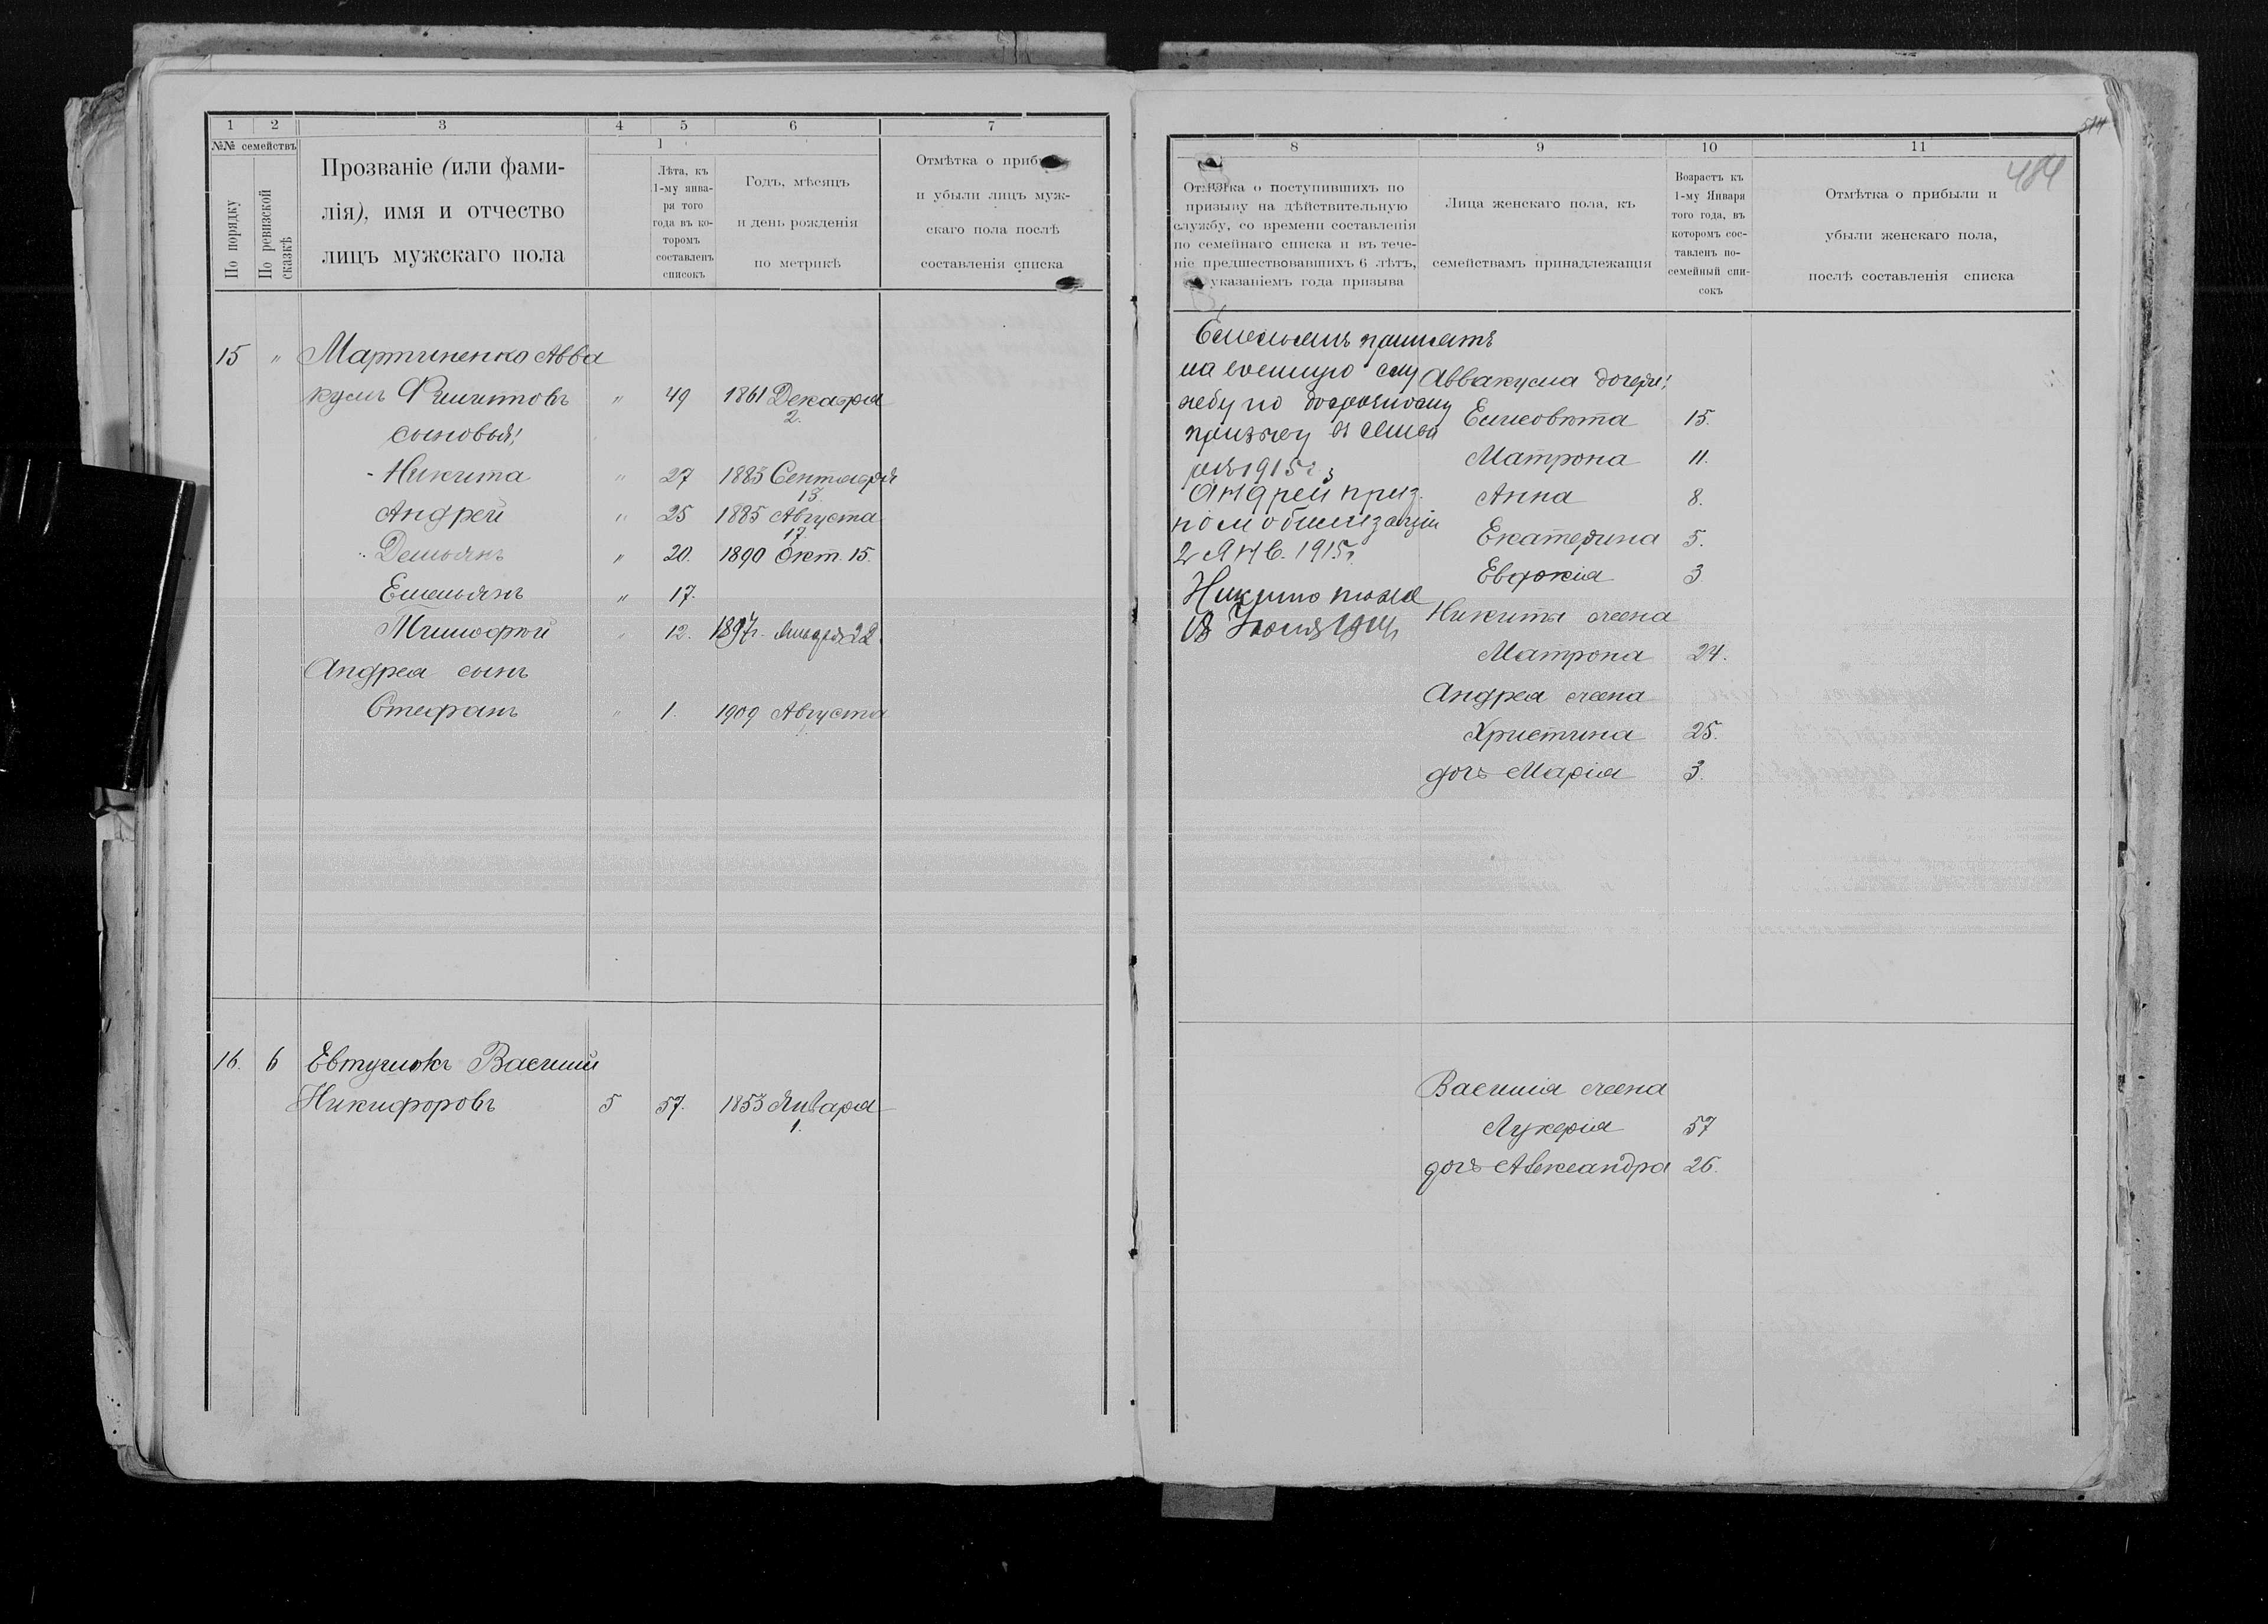 1 2 3 4 5 6 7
№№ семействъ
По порядку
По ревизской сказкѣ
Прозваніе (или фами-
лія), имя и отчество
лицъ мужскаго пола
Лѣта, къ
1-му янва-
ря того
года въ ко-
торомъ
составленъ
списокъ
Годъ, мѣсяцъ
и день рожденія
по метрикѣ
Отмѣтка о приб
и убыли лицъ муж-
скаго пола послѣ
составленія списка
15 " Мартиненко Авва
кумъ " 49 1861 Декабря
2.
сыновья:
Никита " 27 1883 Сентября
13.
Андрей " 25 1885 Августа
17.
Демьянъ " 20. 1890 Окт. 15.
Емельянъ " 17.
Тимофѣй " 12. 1897г. Января 22.
Андрея сынъ
Стефанъ " 1. 1909 Августа
16. 6 Евтушокъ Василій
Никифоровъ 5 57. 1853 Января
1.
8 9 10 11
514
484
Отмѣтка о поступившихъ по
призыву на дѣйствительную
службу, со времени составленія
по семейнаго списка и въ тече-
ніе предшествовавшихъ 6 лѣтъ,
указаніемъ года призыва
Лица женскаго пола, къ
семействамъ принадлежащія
Возрастъ къ
1-му Января
того года, въ
которомъ сос-
тавленъ по-
семейный спи-
сокъ
Отмѣтка о прибыли и
убыли женскаго пола,
послѣ составленія списка
Емельянъ принятъ
на военную слу
жбу по досрочному
призыву
1915г.
Андрей приз.
по мобилизаціи
2 Янв. 1915г.
Никита
18 Іюля 1914г
Аввакума дочери:
Елисовѣта 15.
Матрона 11.
Анна 8.
Екатерина 5.
Евдокія 3
Никиты жена
Матрона 24.
Андрея жена
Христина 25.
дочь Марія 3.
Василія жена
Лукерія 57
дочь Александра 26.